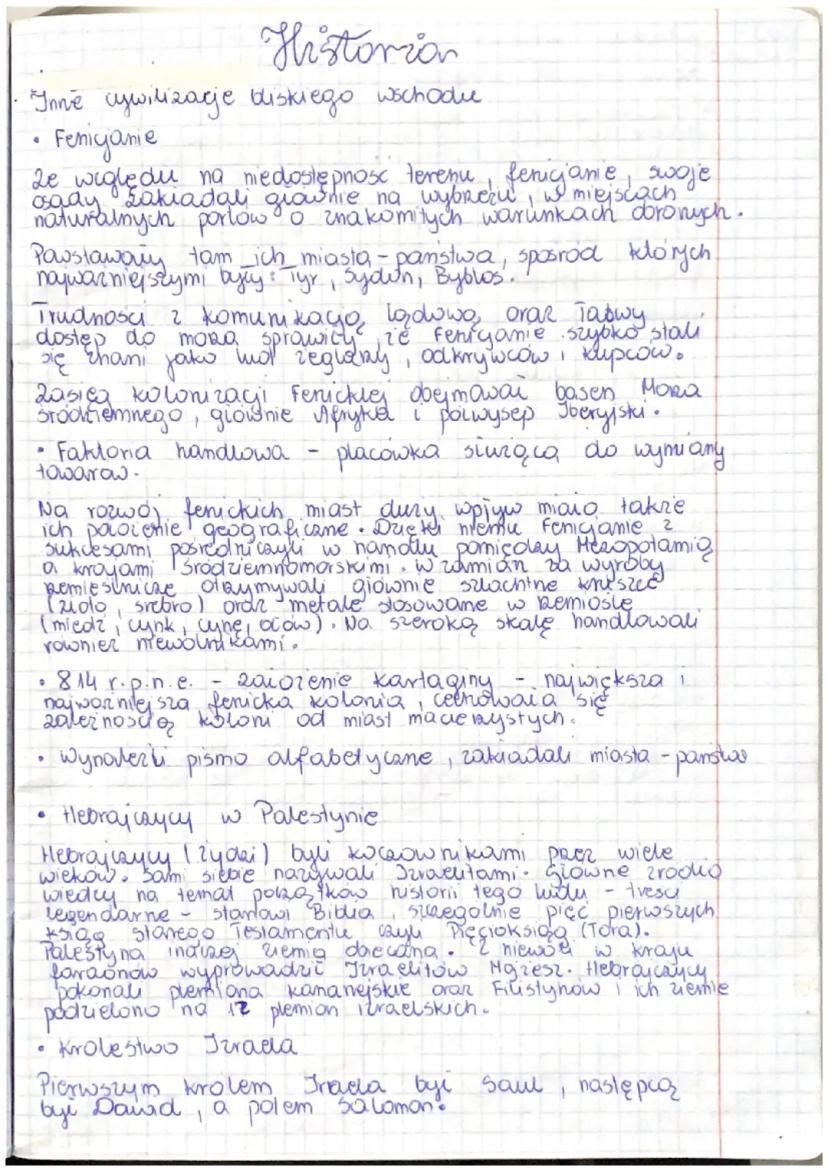 Historia
Inne cywilizacje bliskiego wschodu
• Fenicjanie
Ze względu na niedostępność terenu, fenicjanie, swoje
osady zakładali głównie na wybrzeżu, w miejscach
naturalnych portów o znakomitych warunkach obronych.
Powstawały tam ich miasta-państwa, spośród których
najważniejszymi były: Tyr, Sydon, Byblos.
Trudności z komunikacją lądową oraz łatwy
dostęp do morza sprawiły, że Fenicjanie szybko stali
się znani jako lud żeglarzy, odkrywców i kupców.
Zasięg kolonizacji Fenickiej obejmował basen Morza
środziemnego, głównie Afrykę i półwysep Iberyjski.
• Faktoria handlowa - placówka służąca do wymiany
towarów.
Na rozwój fenickich miast duży wpływ miało także
ich położenie geograficzne. Dzięki niemu Fenicjanie z
sukcesami pośredniczyli w handlu pomiędzy Mezopotamią
a krajami śródziemnomorskimi. W zamian za wyroby
rzemieślnicze otrzymywali głównie szlachtne kruszce
(złoto, srebro) oraz metale stosowane w rzemiośle
(miedź, cynk, cynę, ołów). Na szeroką skalę handlowali
również niewolnikami.
• 814 r.p.n.e. - założenie Kartaginy - największa i
najważniejsza fenicka kolonia, cechowała się
zależnością koloni od miast macierzystych.
• Wynaleźli pismo alfabetyczne, zakładali miasta-państwa
• Hebrajczycy w Palestynie
Hebrajczycy (Żydzi) byli koczownikami przez wiele
wieków. Sami siebie nazywali Izraelitami. Główne źródło
wiedzy na temat początków historii tego ludu - treści
legendarne - stanowi Biblia, szczególnie pięć pierwszych
ksiąg starego Testamentu czyli Pięcioksiąg (Tora).
Palestyna inaczej ziemia obiecana. Z niewoli w kraju
faraonów wyprowadził Izraelitów Mojżesz. Hebrajczycy
pokonali plemiona kananejskie oraz Filistynów i ich ziemie
podzielono na 12 plemion izraelskich.
• Królestwo Izraela
Pierwszym królem Izraela był Saul, następcą
był Dawid, a potem Salomon.